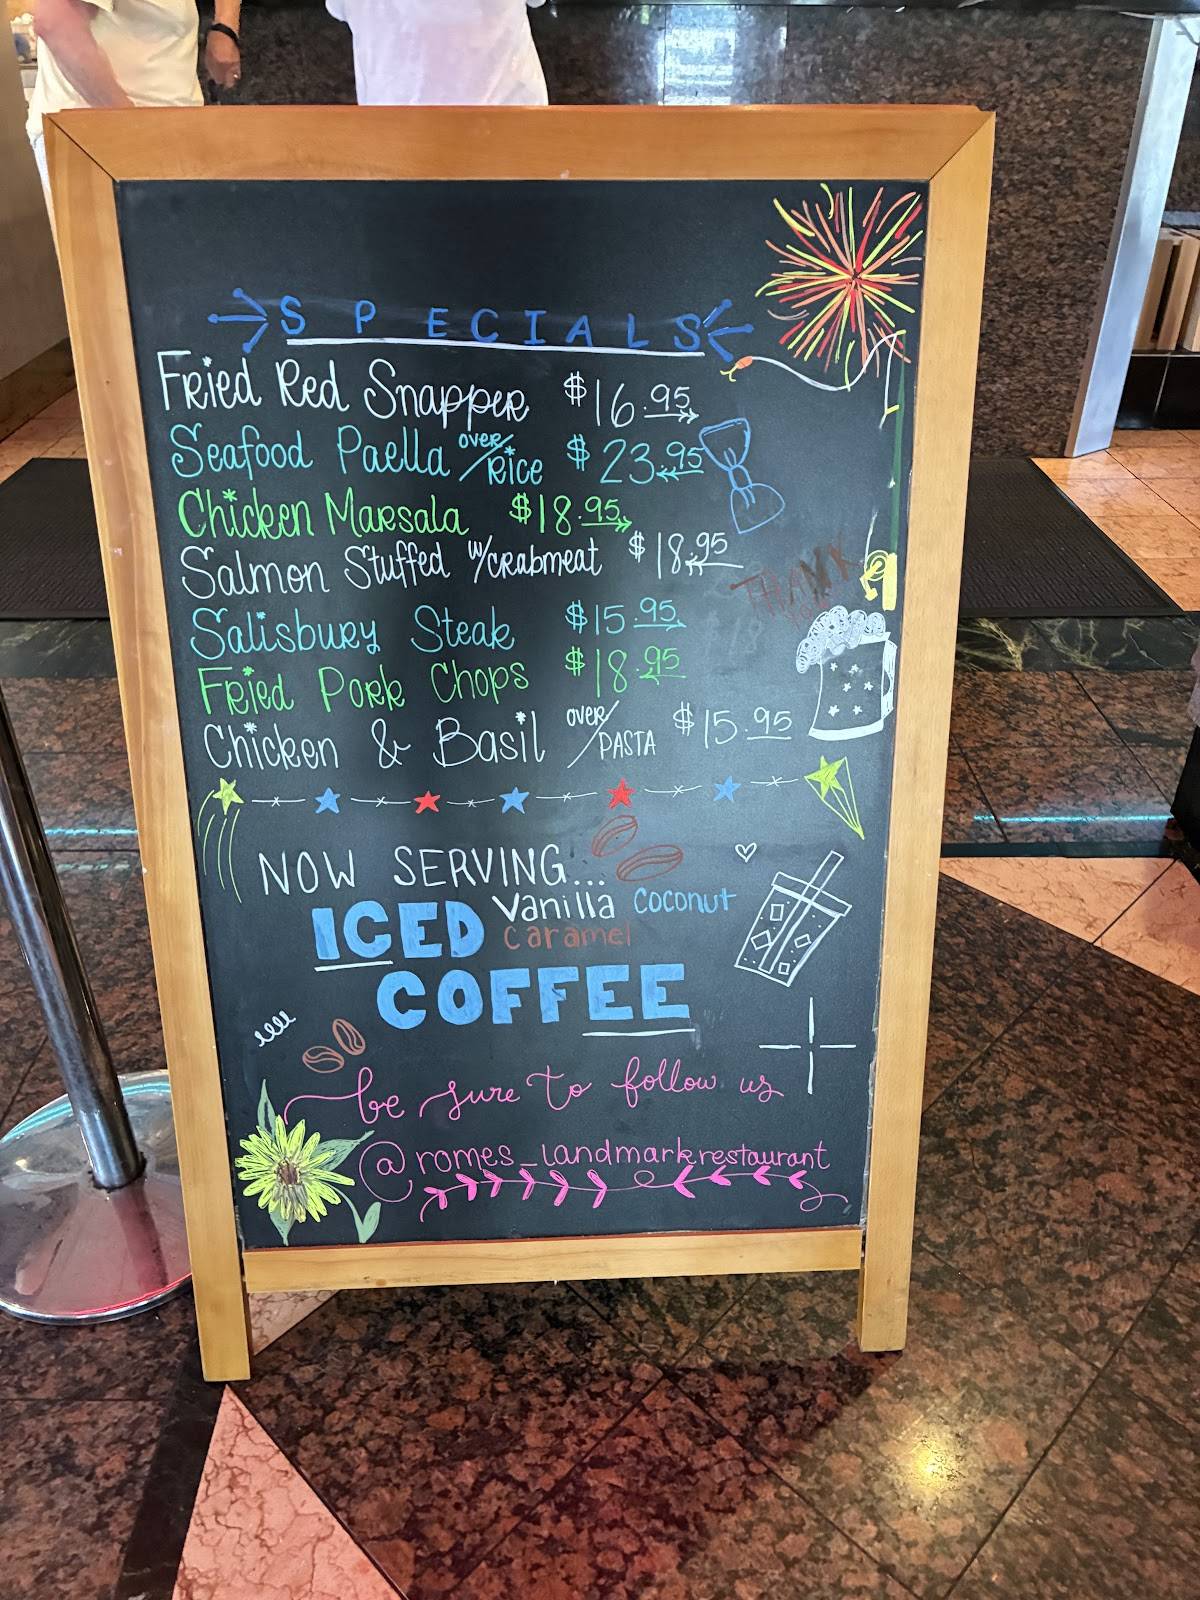 SPECIALS
Fried Red Snapper $16.95
Seafood Paella over/Rice $23.95
Chicken Marsala $18.95
Salmon Stuffed w/crabmeat $18.95
Salisbury Steak $15.95
Fried Pork Chops $18.95
Chicken & Basil over/PASTA $15.95
THANK
YOU
NOW SERVING...
ICED Vanilla Coconut
Caramel
COFFEE
be sure to follow us
@romes_landmarkrestaurant